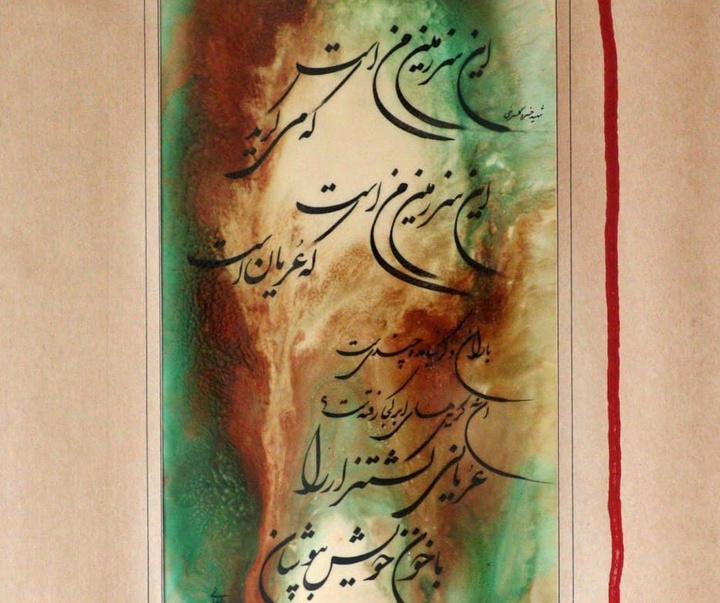 این سرزمین من است
شهید خسرو گلسرخی
که می گرید
این سرزمین من است
که عُریان است
باران دگر نیامده چندی ست
گریه های ابر کجا رفته ست؟
عُریانی کشتزار را
با خون خویش بپوشان